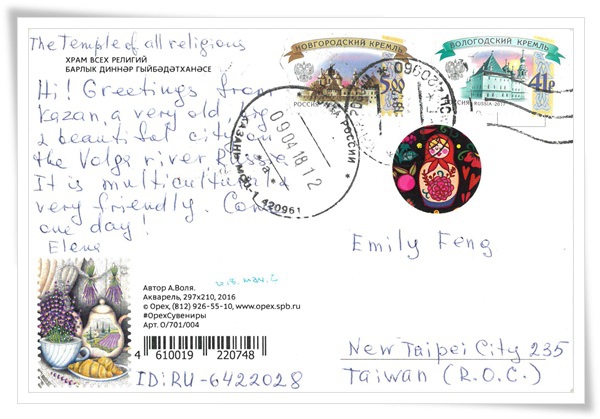 The Temple of all religious
ХРАМ ВСЕХ РЕЛИГИЙ
БАРЛЫК ДИННӘР ГЫЙБӘДӘТХАНӘСЕ
Hi! Greetings from
Kazan, a very old
& beautiful city on
the Volga river, Russia
It is multicultural &
very friendly. Come
one day!
Elena
НОВГОРОДСКИЙ КРЕМЛЬ
РОССИЯ
5.00
ВОЛОГОДСКИЙ КРЕМЛЬ
РОССИЯ RUSSIA 2017
41р
ПОЧТА РОССИИ
КАЗАНЬ
420961
09041812
Emily Feng
New Taipei City 235
Taiwan (R.O.C.)
Автор А.Воля.
Акварель, 297x210, 2016
© Орех, (812) 926-55-10, www.opex.spb.ru
#ОрехСувениры
Арт. О/701/004
4 610019 220748
ID: RU-6422028